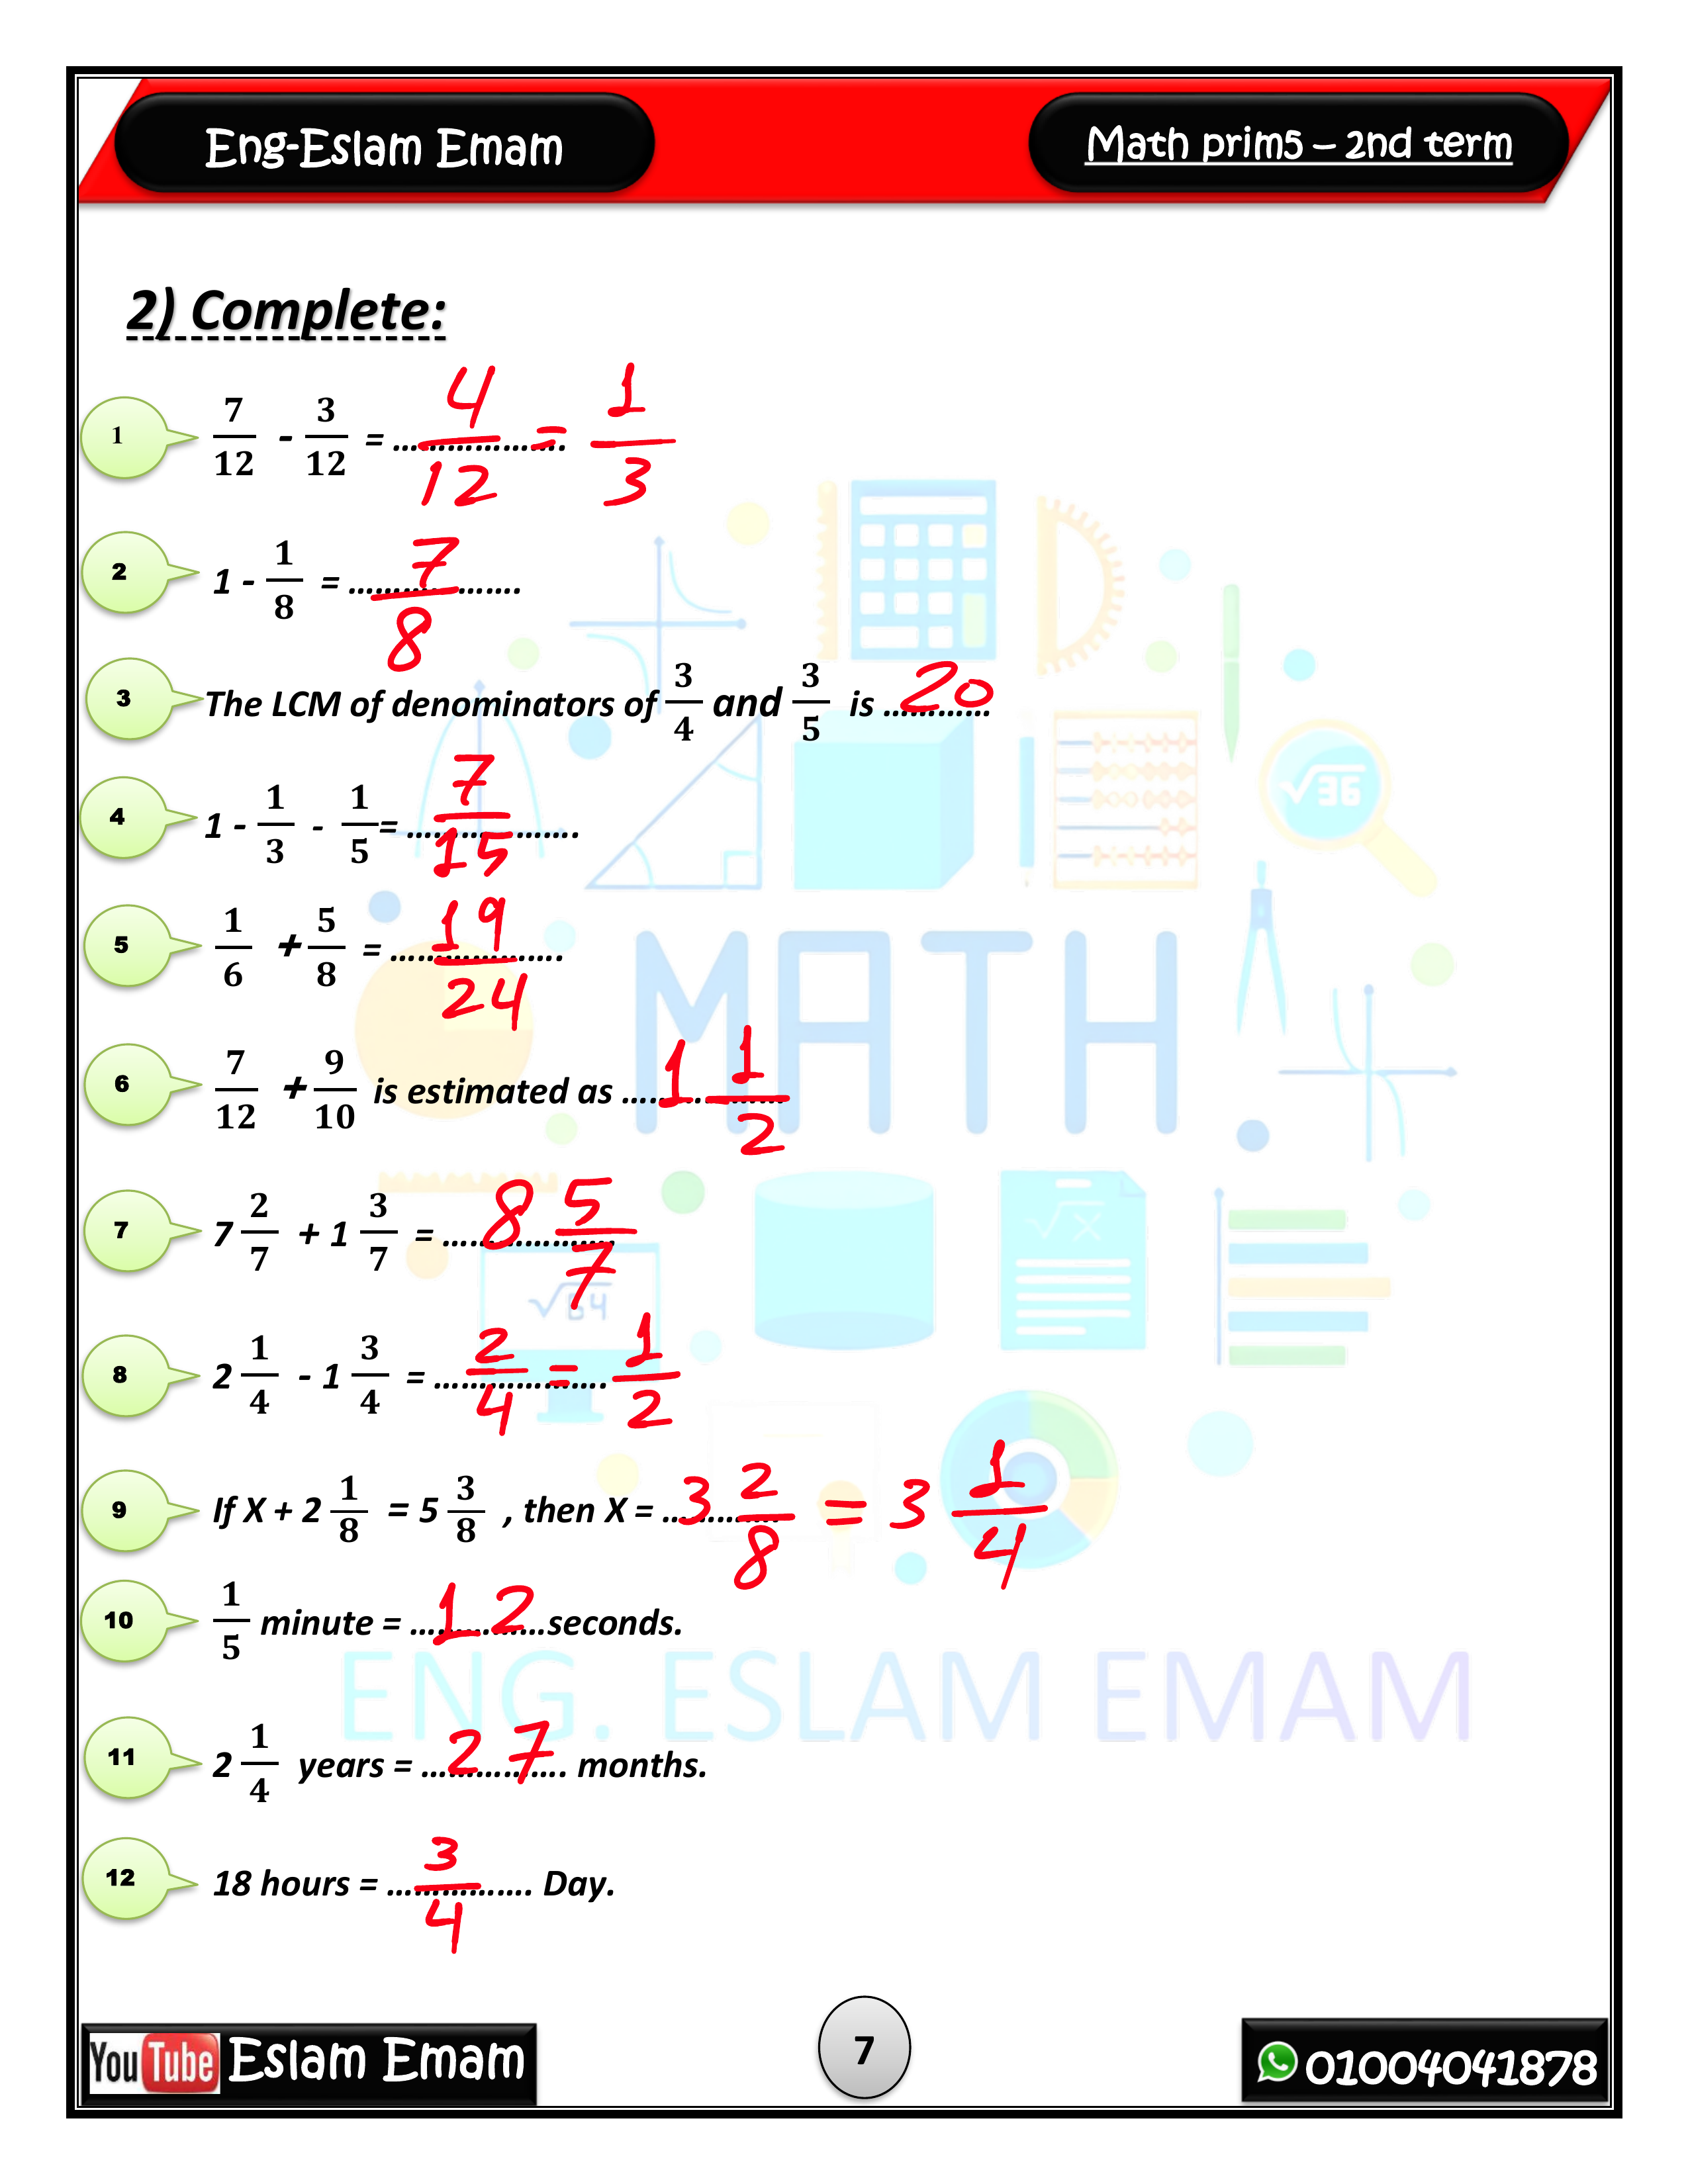 Eng-Eslam Emam
Math prim5 – 2nd term
2) Complete:
1 7/12 - 3/12 = ................... 4/12 = 1/3
2 1 - 1/8 = ................... 7/8
3 The LCM of denominators of 3/4 and 3/5 is ............ 20
4 1 - 1/3 - 1/5 = ................... 7/15
5 1/6 + 5/8 = ................... 19/24
6 7/12 + 9/10 is estimated as .................. 1 1/2
7 7 2/7 + 1 3/7 = ................... 8 5/7
8 2 1/4 - 1 3/4 = ................... 2/4 = 1/2
9 If X + 2 1/8 = 5 3/8 , then X = ............. 3 2/8 = 3 1/4
10 1/5 minute = ............... 12 seconds.
11 2 1/4 years = ................ 27 months.
12 18 hours = ................ 3/4 Day.
√36
MATH
√x
√64
ENG. ESLAM EMAM
YouTube Eslam Emam
7
01004041878